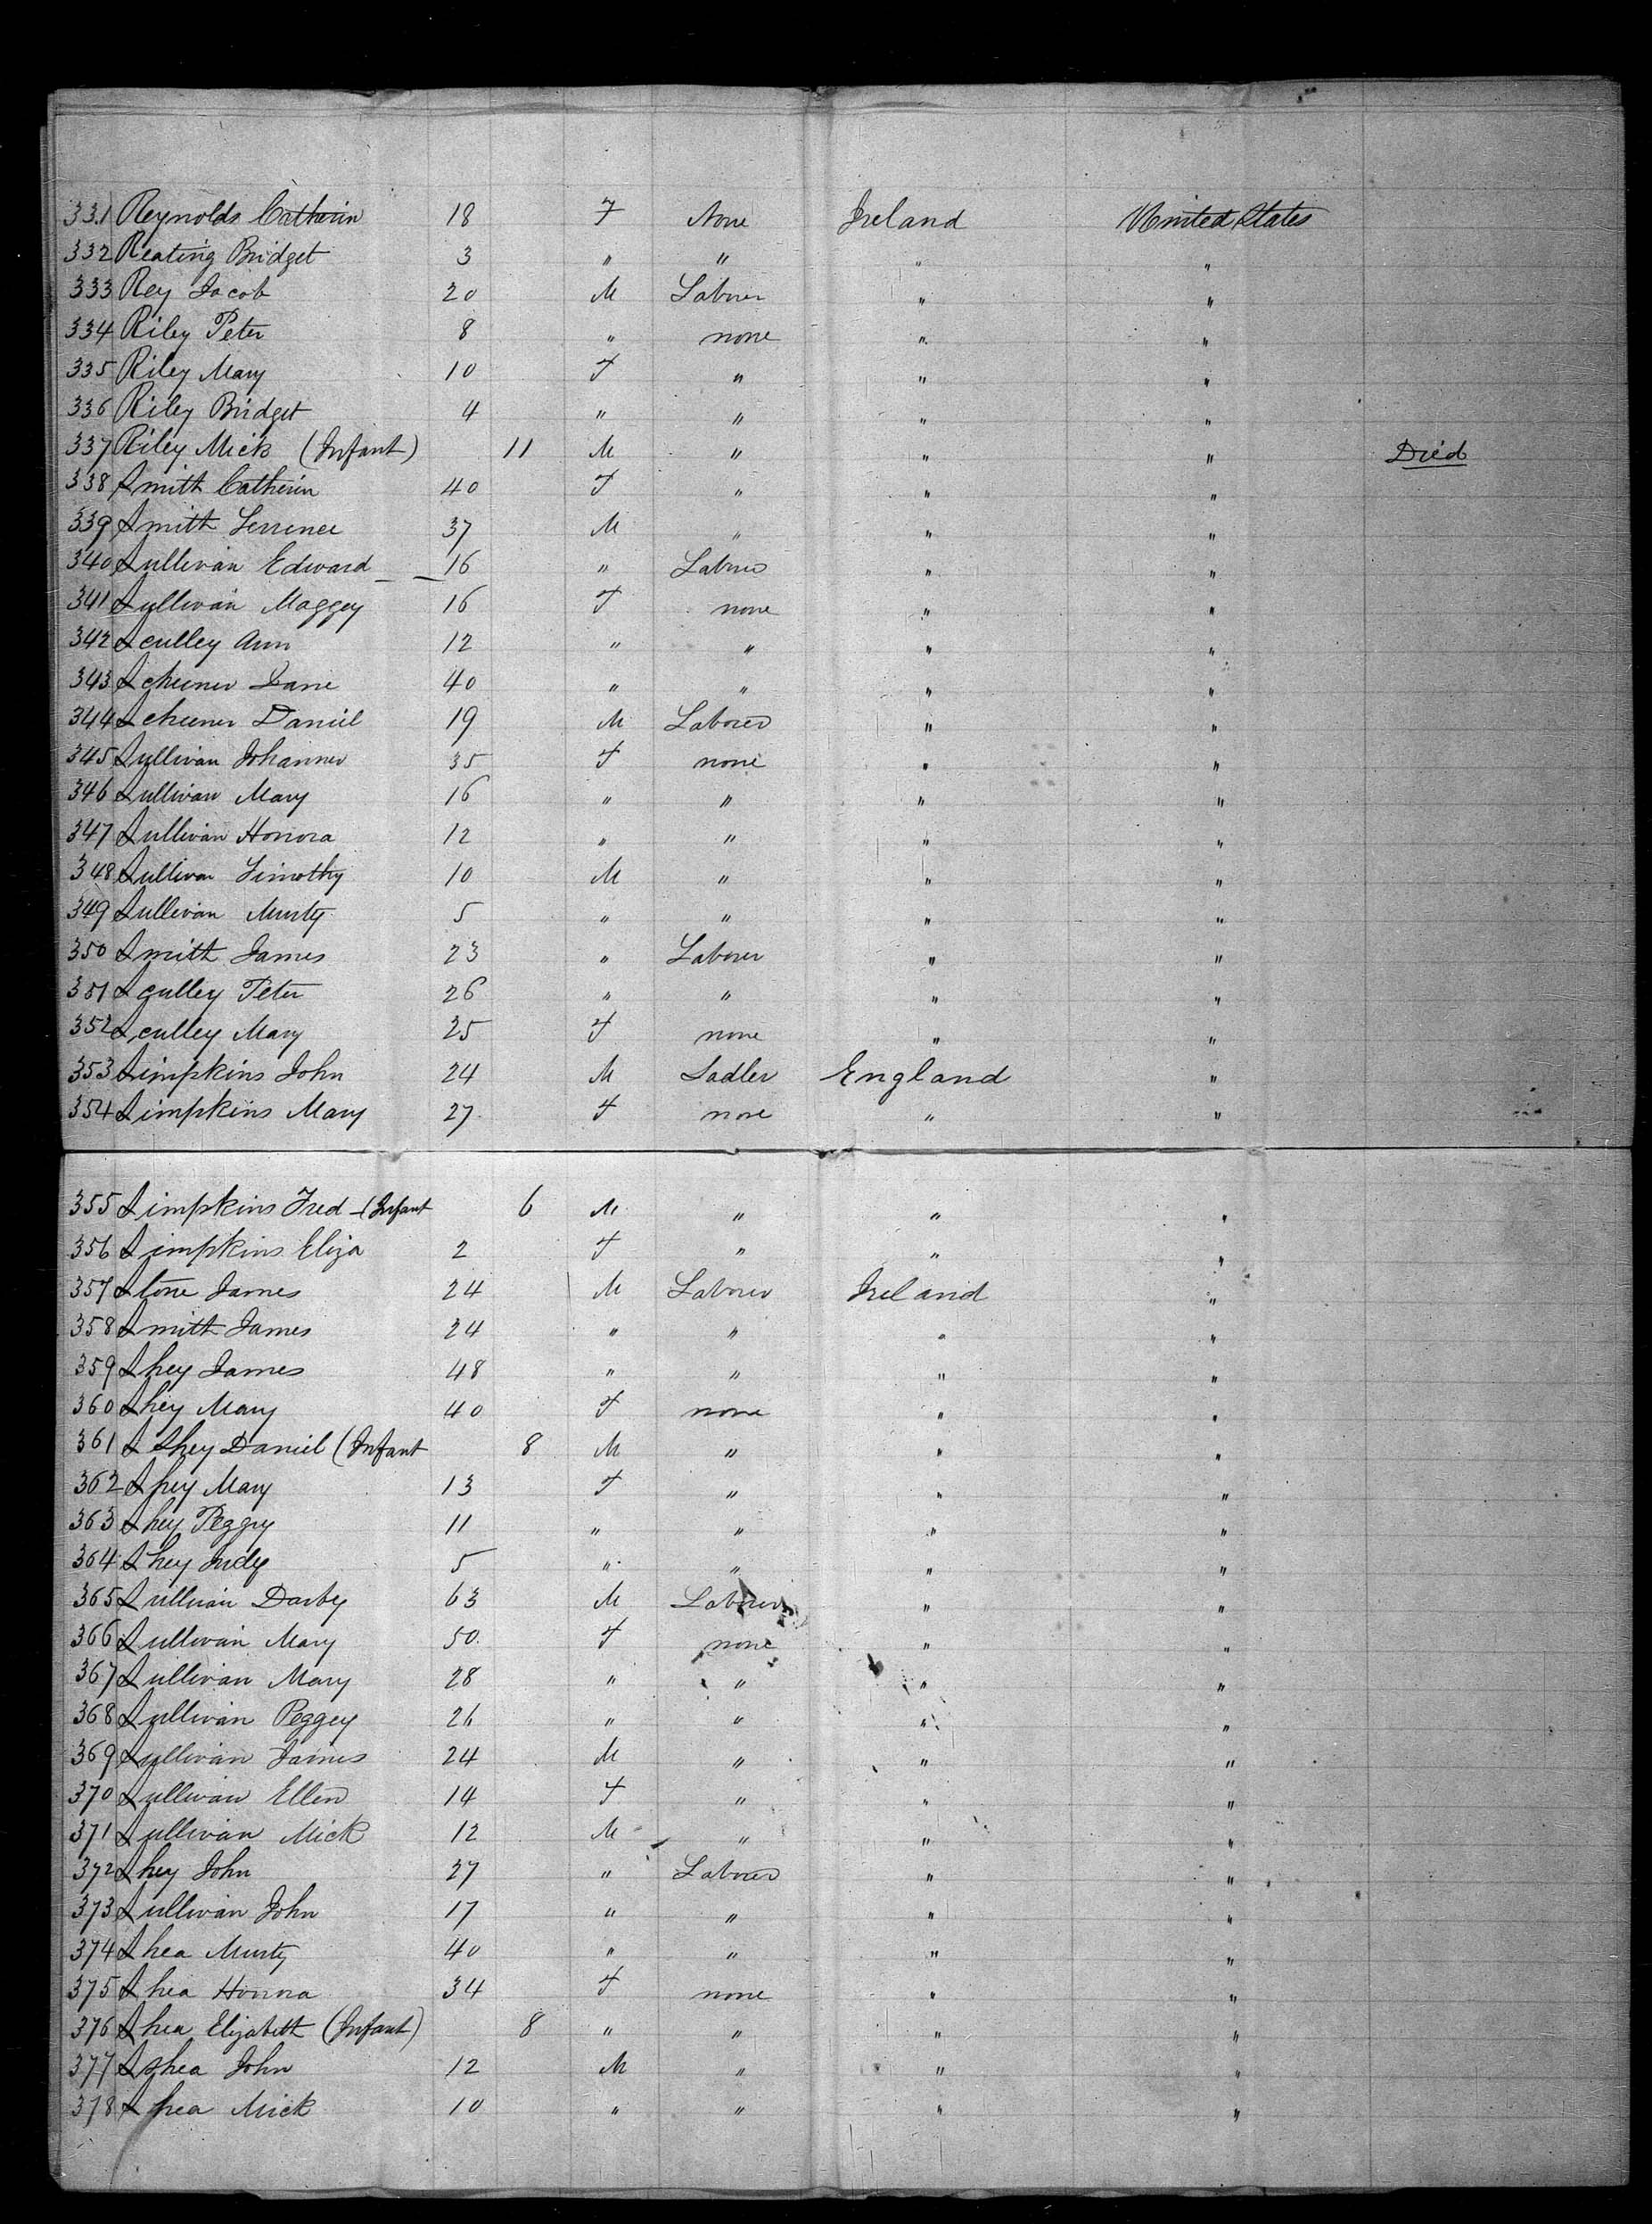 331 Reynolds Catherin 18 F None Ireland United States
332 Keating Bridget 3 " " " "
333 Rey Jacob 20 M Laborer " "
334 Riley Peter 8 " none " "
335 Riley Mary 10 F " " "
336 Riley Bridget 4 " " " "
337 Riley Mick (Infant) 11 M " " " Died
338 Smith Catherin 40 F " " "
339 Smith Terrence 37 M " " "
340 Sullivan Edward 16 " Laborer " "
341 Sullivan Maggey 16 F none " "
342 Sculley Ann 12 " " " "
343 Jane 40 " " " "
344 Daniel 19 M Laborer " "
345 Sullivan Johanner 35 F none " "
346 Sullivan Mary 16 " " " "
347 Sullivan Honora 12 " " " "
348 Sullivan Timothy 10 M " " "
349 Sullivan Murty 5 " " " "
350 Smith James 23 " Laborer " "
351 Sculley Peter 26 " " " "
352 Sculley Mary 25 F none " "
353 Simpkins John 24 M Sadler England "
354 Simpkins Mary 27 F none " "
355 Simpkins Fred - (Infant 6 M " " "
356 Simpkins Eliza 2 F " " "
357 Stone James 24 M Laborer Ireland "
358 Smith James 24 " " " "
359 Shey James 48 " " " "
360 Shey Mary 40 F none " "
361 S Shey Daniel (Infant 8 M " " "
362 Shey Mary 13 F " " "
363 Shey Peggy 11 " " " "
364 Shey Judy 5 " " " "
365 Sullivan Darby 63 M Laborer " "
366 Sullivan Mary 50 F none " "
367 Sullivan Mary 28 " " " "
368 Sullivan Peggey 26 " " " "
369 Sullivan James 24 M " " "
370 Sullivan Ellen 14 F " " "
371 Sullivan Mick 12 M " " "
372 Shey John 27 " Laborer " "
373 Sullivan John 17 " " " "
374 Shea Murty 40 " " " "
375 Shea Honora 34 F none " "
376 Shea Elizabeth (Infant) 8 " " " "
377 S shea John 12 M " " "
378 Shea Mick 10 " " " "